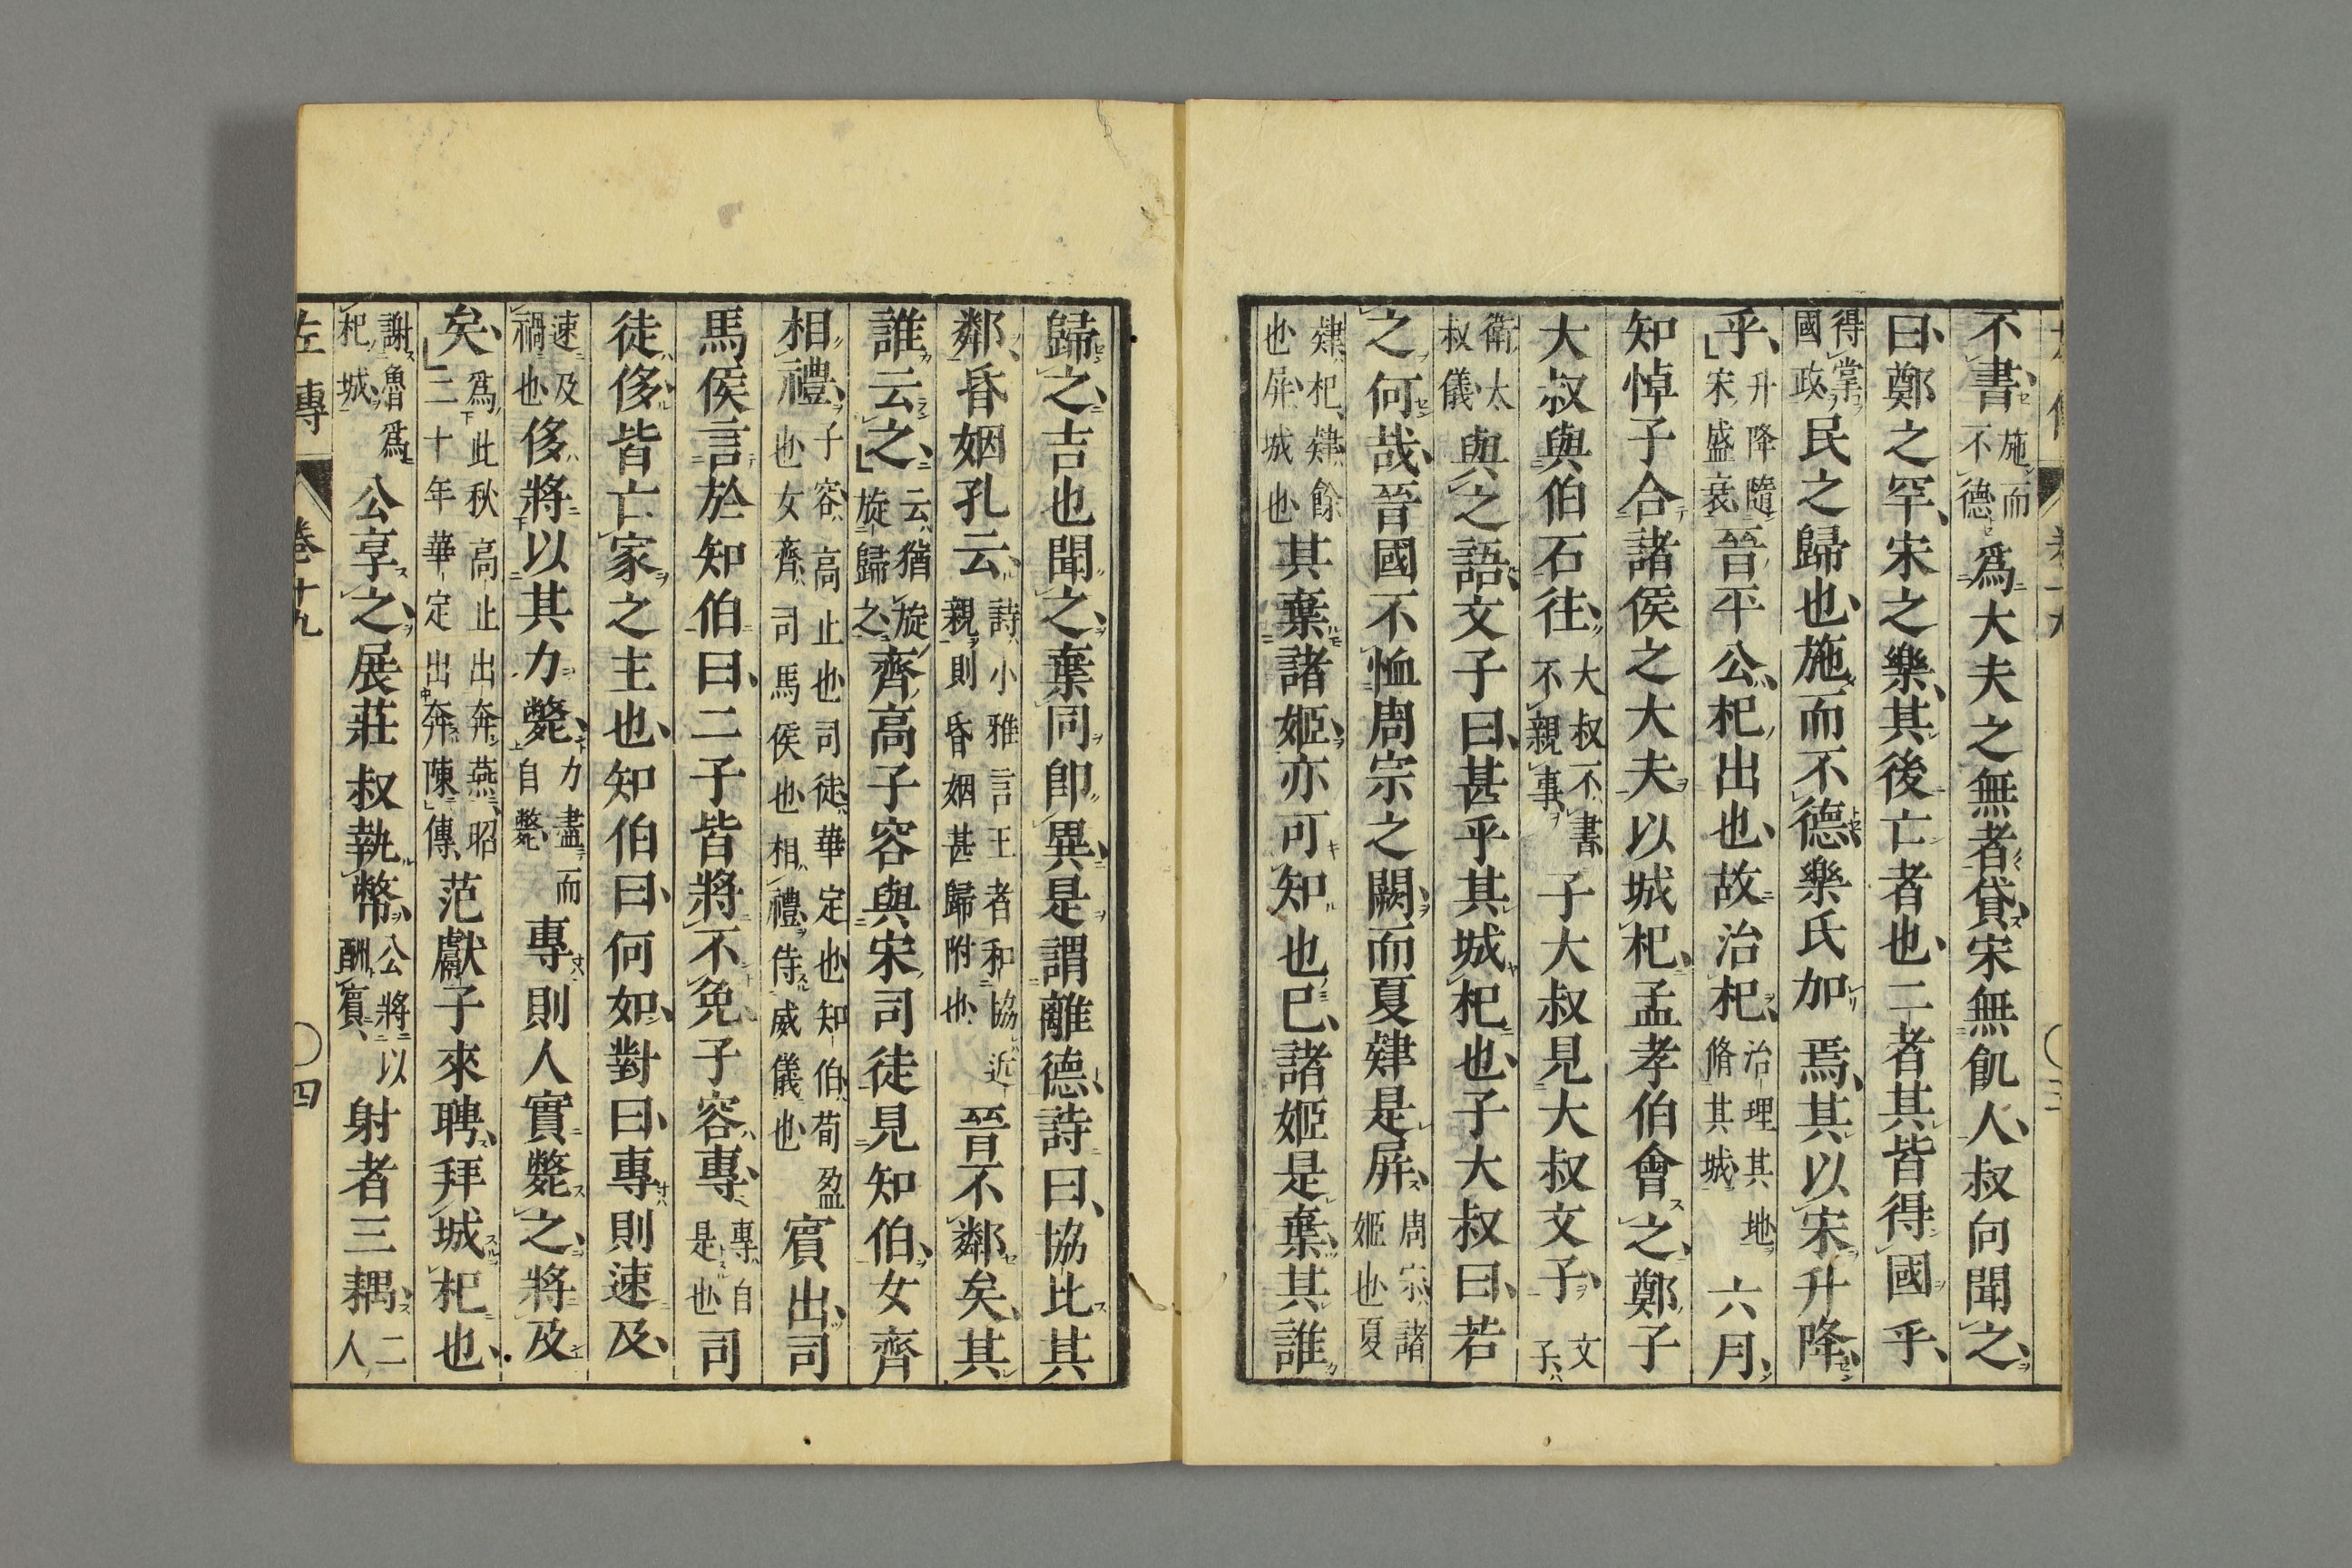 不書施而不德爲大夫之無者貸宋無飢人叔向聞之
曰鄭之罕宋之樂其後亡者也二者其皆得國乎
得掌國政民之歸也施而不德樂氏加焉其以宋升降
乎升降隨宋盛衰晉平公杞出也故治杞治理其地脩其城六月
知悼子合諸侯之大夫以城杞孟孝伯會之鄭子
大叔與伯石往大叔不書不親事子大叔見大叔文子文子
衛大叔儀與之語文子曰甚乎其城杞也子大叔曰若
之何哉晉國不恤周宗之闕而夏肄是屏周宗諸姬也夏
肄杞肄餘也屏城也其棄諸姬亦可知也已諸姬是棄其誰
歸之吉也聞之棄同卽異是謂離德詩曰協比其
鄰昏姻孔云詩小雅言王者和協近親則昏姻甚歸附也晉不鄰矣其
誰云之云猶旋旋歸之齊高子容與宋司徒見知伯女齊
相禮子容高止也司徒華定也知伯荀盈也女齊司馬侯也相禮侍威儀也賓出司
馬侯言於知伯曰二子皆將不免子容專專自是也司
徒侈皆亡家之主也知伯曰何如對曰專則速及
速及禍也侈將以其力斃力盡而自斃專則人實斃之將及
矣爲此秋高止出奔燕昭二十年華定出奔陳傳范獻子來聘拜城杞也
謝魯爲杞城公享之展莊叔執幣公將以酬賓射者三耦二人
左傳
卷十九
四